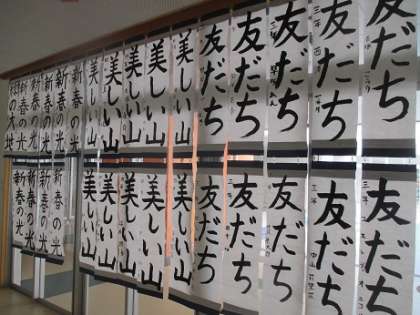 友だち
友だち
友だち
友だち
友だち
友だち
美しい山
美しい山
美しい山
美しい山
美しい山
新春の光
新春の光
新春の光
新春の光
友だち
友だち
友だち
友だち
友だち
友だち
美しい山
美しい山
美しい山
美しい山
美しい山
新春の光
新春の光
新春の光
新春の光